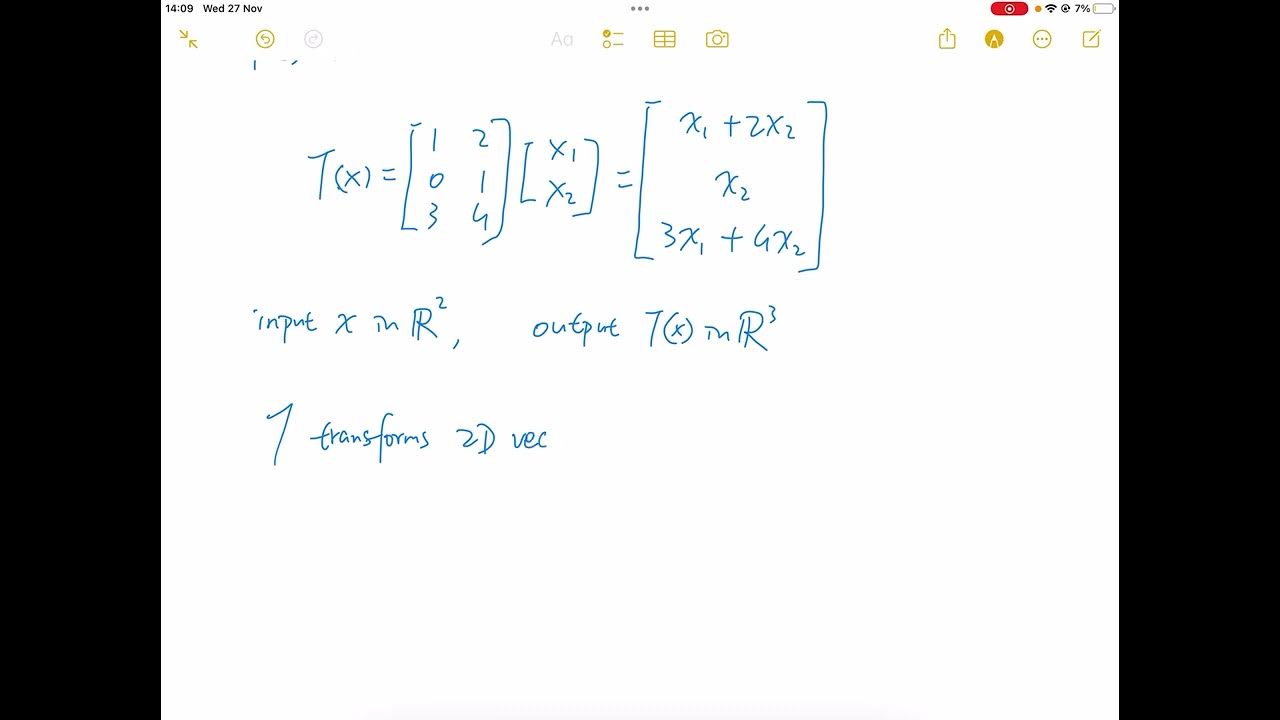 14:09 Wed 27 Nov 7%
Aa
T(x) = [1 2; 0 1; 3 4] [x₁; x₂] = [x₁ + 2x₂; x₂; 3x₁ + 4x₂]
input x in ℝ², output T(x) in ℝ³
T transforms 2D vec